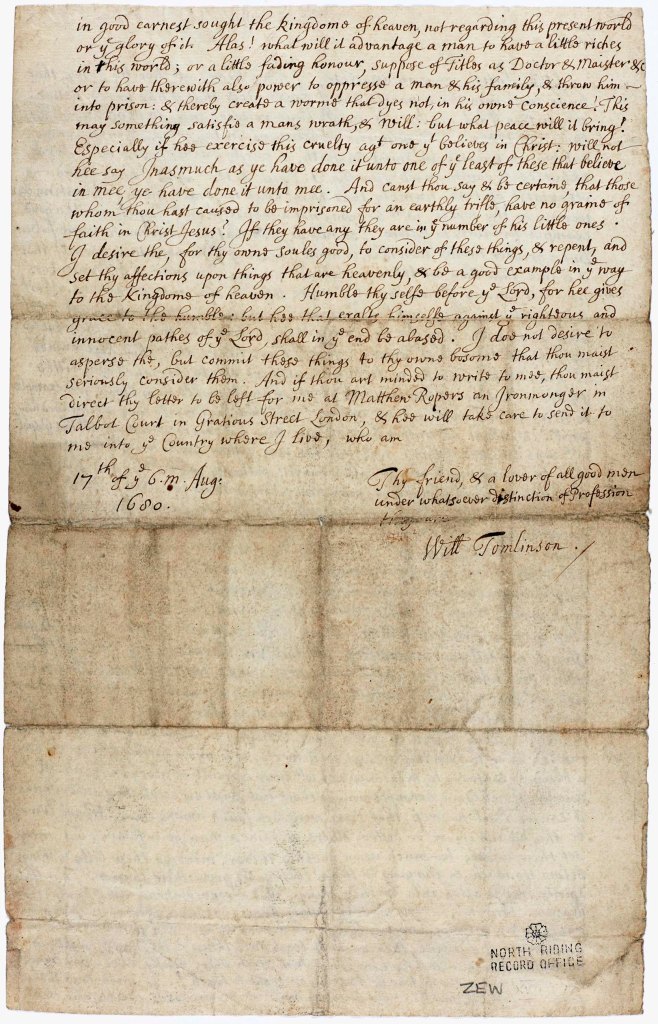 in good earnest sought the kingdome of heaven, not regarding this present world
or yͤ glory of it. Alas! what will it advantage a man to have a little riches
in this world; or a little fading honour, suppose of Titles as Doctor & Maister &c
or to have therewith also power to oppresse a man & his family, & throw him
into prison: & thereby create a worme that dyes not, in his owne Conscience! This
may something satisfie a mans wrath, & Will: but what peace will it bring!
Especially if hee exercise this cruelty agͭ one yͭ believes in Christ: will not
hee say Inasmuch as ye have done it unto one of yͤ least of these that believe
in mee, ye have done it unto mee. And canst thou say & be certaine that those
whom thou hast caused to be imprisoned for an earthly trifle, have no graine of
faith in Christ Jesus? If they have any they are in yͤ number of his little ones.
I desire the, for thy owne soules good, to consider of these things, & repent, and
set thy affections upon things that are heavenly, & be a good example in yͤ way
to the Kingdome of heaven. Humble thy selfe before yͤ Lord, for hee gives
grace to the humble: but hee that exalts himselfe against yͤ righteous and
innocent pathes of yͤ Lord, shall in yͤ end be abased. I doe not desire to
asperse the, but commit these things to thy owne bosome that thou maist
seriously consider them. And if thou art minded to write to mee, thou maist
direct thy letter to be left for me at Matthew Ropers an Ironmonger in
Talbot Court in Gratious Street London, & hee will take care to send it to
me into yͤ Country where I live, who am
17th of yͤ 6.m. Aug:
1680.
Thy friend, & a lover of all good men
under whatsoever distinction of Profession
Will Tomlinson.
NORTH RIDING
RECORD OFFICE
ZEW